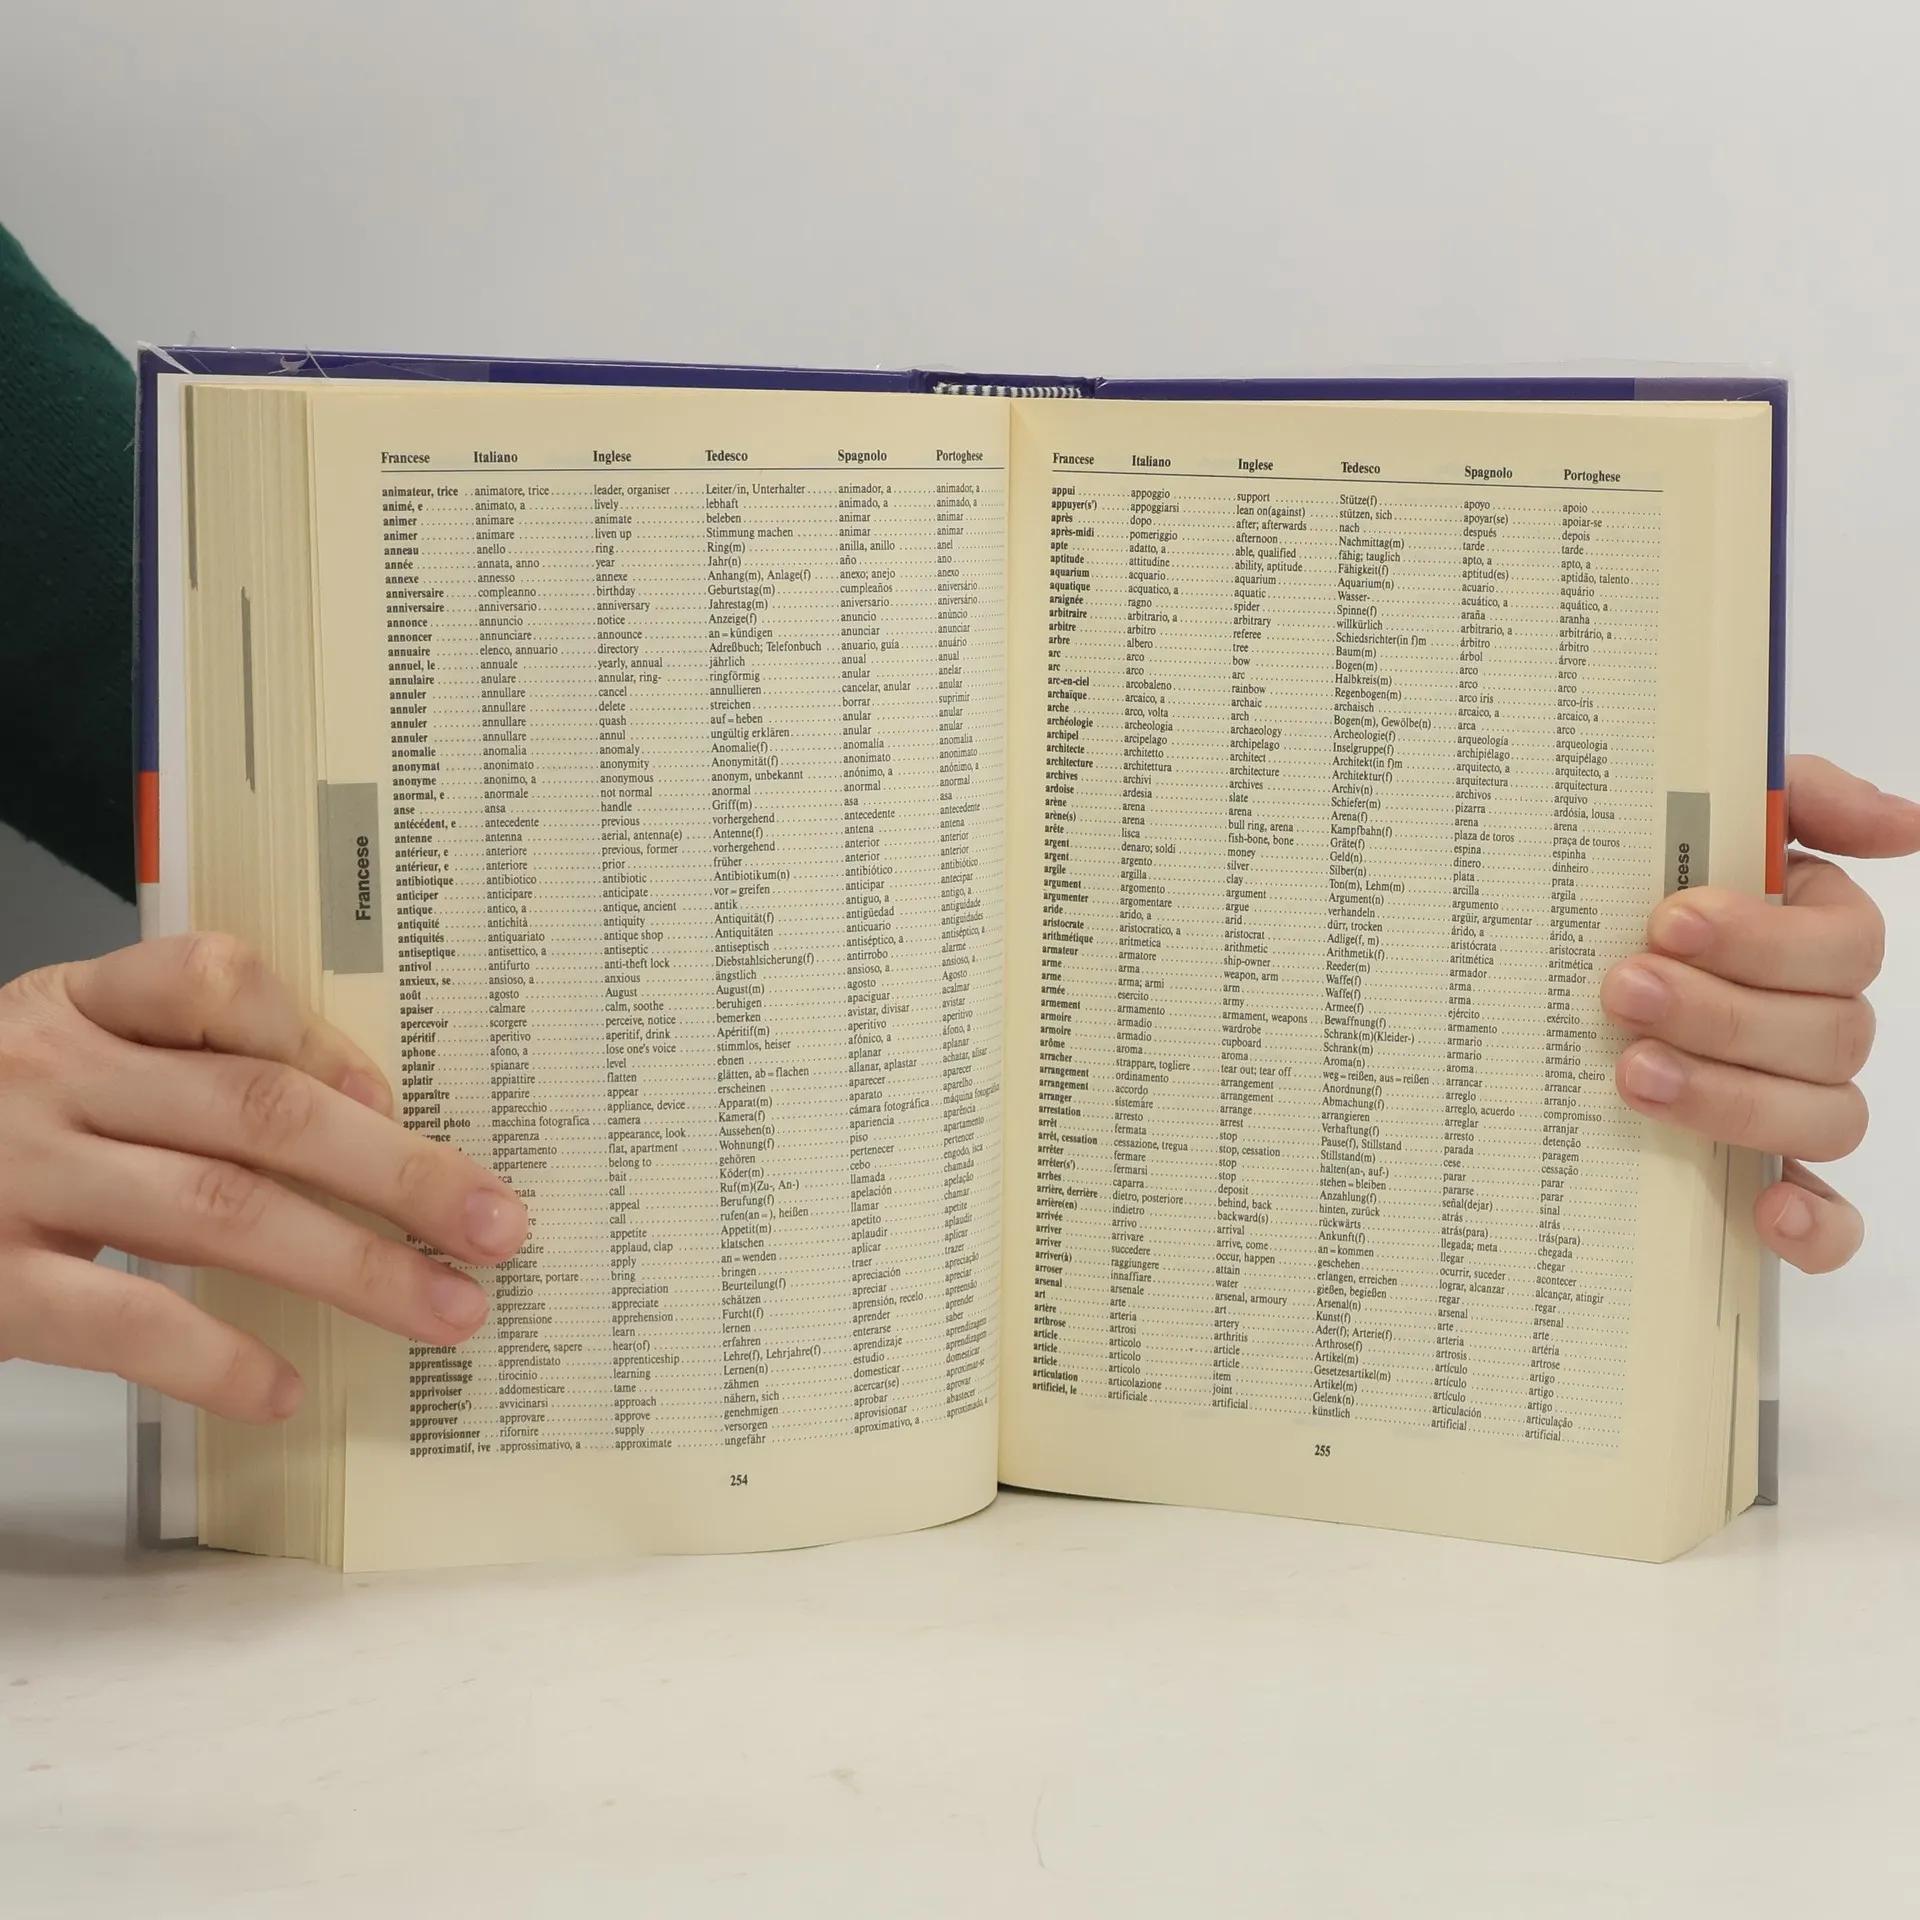 Francese Italiano Inglese Tedesco Spagnolo Portoghese
animateur, trice animatore, trice leader, organiser Leiter/in, Unterhalter animador, a animador, a
animé, e animato, a lively lebhaft animado, a animado, a
animer animare animate beleben animar animar
animer animare liven up Stimmung machen animar animar
anneau anello ring Ring(m) anilla, anillo anel
année annata, anno year Jahr(n) año ano
annexe annesso annexe Anhang(m), Anlage(f) anexo; anejo anexo
anniversaire compleanno birthday Geburtstag(m) cumpleaños aniversário
anniversaire anniversario anniversary Jahrestag(m) aniversario aniversário
annonce annuncio notice Anzeige(f) anuncio anúncio
annoncer annunciare announce an=kündigen anunciar anunciar
annuaire elenco, annuario directory Adreßbuch; Telefonbuch anuario, guía anuário
annuel, le annuale yearly, annual jährlich anual anual
annulaire anulare annular, ring- ringförmig anular anelar
annuler annullare cancel annullieren cancelar, anular anular
annuler annullare delete streichen borrar suprimir
annuler annullare quash auf=heben anular anular
annuler annullare annul ungültig erklären anular anular
anomalie anomalia anomaly Anomalie(f) anomalía anomalia
anonymat anonimato anonymity Anonymität(f) anonimato anonimato
anonyme anonimo, a anonymous anonym, unbekannt anónimo, a anónimo, a
anormal, e anormale not normal anormal anormal anormal
anse ansa handle Griff(m) asa asa
antécédent, e antecedente previous vorhergehend antecedente antecedente
antenne antenna aerial, antenna(e) Antenne(f) antena antena
antérieur, e anteriore previous, former vorhergehend anterior anterior
antérieur, e anteriore prior früher anterior anterior
antibiotique antibiotico antibiotic Antibiotikum(n) antibiótico antibiótico
anticiper anticipare anticipate vor=greifen anticipar antecipar
antique antico, a antique, ancient antik antiguo, a antigo, a
antiquité antichità antiquity Antiquität(f) antigüedad antiguidade
antiquités antiquariato antique shop Antiquitäten anticuario antiguidades
antiseptique antisettico, a antiseptic antiseptisch antiséptico, a antiséptico, a
antivol antifurto anti-theft lock Diebstahlsicherung(f) antirrobo alarme
anxieux, se ansioso, a anxious ängstlich ansioso, a ansioso, a
août agosto August August(m) agosto Agosto
apaiser calmare calm, soothe beruhigen apaciguar acalmar
apercevoir scorgere perceive, notice bemerken avistar, divisar avistar
apéritif aperitivo aperitif, drink Apéritif(m) aperitivo aperitivo
aphone afono, a lose one's voice stimmlos, heiser afónico, a áfono, a
aplanir spianare level ebnen aplanar aplanar
aplatir appiattire flatten glätten, ab=flachen allanar, aplastar achatar, alisar
apparaître apparire appear erscheinen aparecer aparecer
appareil apparecchio appliance, device Apparat(m) aparato aparelho
appareil photo macchina fotografica camera Kamera(f) cámara fotográfica máquina fotográfica
apparenza appearance, look Aussehen(n) apariencia aparência
appartamento flat, apartment Wohnung(f) piso apartamento
appartenere belong to gehören pertenecer pertencer
bait Köder(m) cebo engodo, isca
call Ruf(m)(Zu-, An-) llamada chamada
appeal Berufung(f) apelación apelação
call rufen(an=), heißen llamar chamar
appetite Appetit(m) apetito apetite
applaud, clap klatschen aplaudir aplaudir
applicare apply an=wenden aplicar aplicar
apportare, portare bring bringen traer trazer
giudizio appreciation Beurteilung(f) apreciación apreciação
apprezzare appreciate schätzen apreciar apreciar
apprensione apprehension Furcht(f) aprensión, recelo apreensão
imparare learn lernen aprender aprender
apprendre apprendere, sapere hear(of) erfahren enterarse saber
apprentissage apprendistato apprenticeship Lehre(f), Lehrjahre(f) aprendizaje aprendizagem
apprentissage tirocinio learning Lernen(n) estudio aprendizagem
apprivoiser addomesticare tame zähmen domesticar domesticar
approcher(s') avvicinarsi approach nähern, sich acercar(se) aproximar-se
approuver approvare approve genehmigen aprobar aprovar
approvisionner rifornire supply versorgen aprovisionar abastecer
approximatif, ive approssimativo, a approximate ungefähr aproximativo, a aproximado, a
254
Francese
Francese Italiano Inglese Tedesco Spagnolo Portoghese
appui appoggio support Stütze(f) apoyo apoio
appuyer(s') appoggiarsi lean on(against) stützen, sich apoyar(se) apoiar-se
après dopo after; afterwards nach después depois
après-midi pomeriggio afternoon Nachmittag(m) tarde tarde
apte adatto, a able, qualified fähig; tauglich apto, a apto, a
aptitude attitudine ability, aptitude Fähigkeit(f) aptitud(es) aptidão, talento
aquarium acquario aquarium Aquarium(n) acuario aquário
aquatique acquatico, a aquatic Wasser- acuático, a aquático, a
araignée ragno spider Spinne(f) araña aranha
arbitraire arbitrario, a arbitrary willkürlich arbitrario, a arbitrário, a
arbitre arbitro referee Schiedsrichter(in f)m árbitro árbitro
arbre albero tree Baum(m) árbol árvore
arc arco bow Bogen(m) arco arco
arc arco arc Halbkreis(m) arco arco
arc-en-ciel arcobaleno rainbow Regenbogen(m) arco iris arco-íris
archaïque arcaico, a archaic archaisch arcaico, a arcaico, a
arche arco, volta arch Bogen(m), Gewölbe(n) arca arco
archéologie archeologia archaeology Archeologie(f) arqueología arqueologia
archipel arcipelago archipelago Inselgruppe(f) archipiélago arquipélago
architecte architetto architect Architekt(in f)m arquitecto, a arquitecto, a
architecture architettura architecture Architektur(f) arquitectura arquitectura
archives archivi archives Archiv(n) archivos arquivo
ardoise ardesia slate Schiefer(m) pizarra ardósia, lousa
arène arena arena Arena(f) arena arena
arène(s) arena bull ring, arena Kampfbahn(f) plaza de toros praça de touros
arête lisca fish-bone, bone Gräte(f) espina espinha
argent denaro; soldi money Geld(n) dinero dinheiro
argent argento silver Silber(n) plata prata
argile argilla clay Ton(m), Lehm(m) arcilla argila
argument argomento argument Argument(n) argumento argumento
argumenter argomentare argue verhandeln argüir, argumentar argumentar
aride arido, a arid dürr, trocken árido, a árido, a
aristocrate aristocratico, a aristocrat Adlige(f, m) aristócrata aristocrata
arithmétique aritmetica arithmetic Arithmetik(f) aritmética aritmética
armateur armatore ship-owner Reeder(m) armador armador
arme arma weapon, arm Waffe(f) arma arma
arme arma; armi arm Waffe(f) arma arma
armée esercito army Armee(f) ejército exército
armement armamento armament, weapons Bewaffnung(f) armamento armamento
armoire armadio wardrobe Schrank(m)(Kleider-) armario armário
armoire armadio cupboard Schrank(m) armario armário
arôme aroma aroma Aroma(n) aroma aroma, cheiro
arracher strappare, togliere tear out; tear off weg=reißen, aus=reißen arrancar arrancar
arrangement ordinamento arrangement Anordnung(f) arreglo arranjo
arrangement accordo arrangement Abmachung(f) arreglo, acuerdo compromisso
arranger sistemare arrange arrangieren arreglar arranjar
arrestation arresto arrest Verhaftung(f) arresto detenção
arrêt fermata stop Pause(f), Stillstand parada paragem
arrêt, cessation cessazione, tregua stop, cessation Stillstand(m) cese cessação
arrêter fermare stop halten(an-, auf-) parar parar
arrêter(s') fermarsi stop stehen=bleiben pararse parar
arrhes caparra deposit Anzahlung(f) señal(dejar) sinal
arrière, derrière dietro, posteriore behind, back hinten, zurück atrás atrás
arrière(en) indietro backward(s) rückwärts atrás(para) trás(para)
arrivée arrivo arrival Ankunft(f) llegada; meta chegada
arriver arrivare arrive, come an=kommen llegar chegar
arriver succedere occur, happen geschehen ocurrir, suceder acontecer
arriver(à) raggiungere attain erlangen, erreichen lograr, alcanzar alcançar, atingir
arroser innaffiare water gießen, begießen regar regar
arsenal arsenale arsenal, armoury Arsenal(n) arsenal arsenal
art arte art Kunst(f) arte arte
artère arteria artery Ader(f); Arterie(f) arteria artéria
arthrose artrosi arthritis Arthrose(f) artrosis artrose
article articolo article Artikel(m) artículo artigo
article articolo article Gesetzesartikel(m) artículo artigo
article articolo item Artikel(m) artículo artigo
articulation articolazione joint Gelenk(n) articulación articulação
artificiel, le artificiale artificial künstlich artificial artificial
255